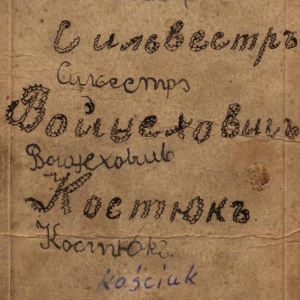 Сильвестръ
Силвестръ
Войцеховичъ
Войцехович
Костюкъ.
Костюкъ.
Kościuk